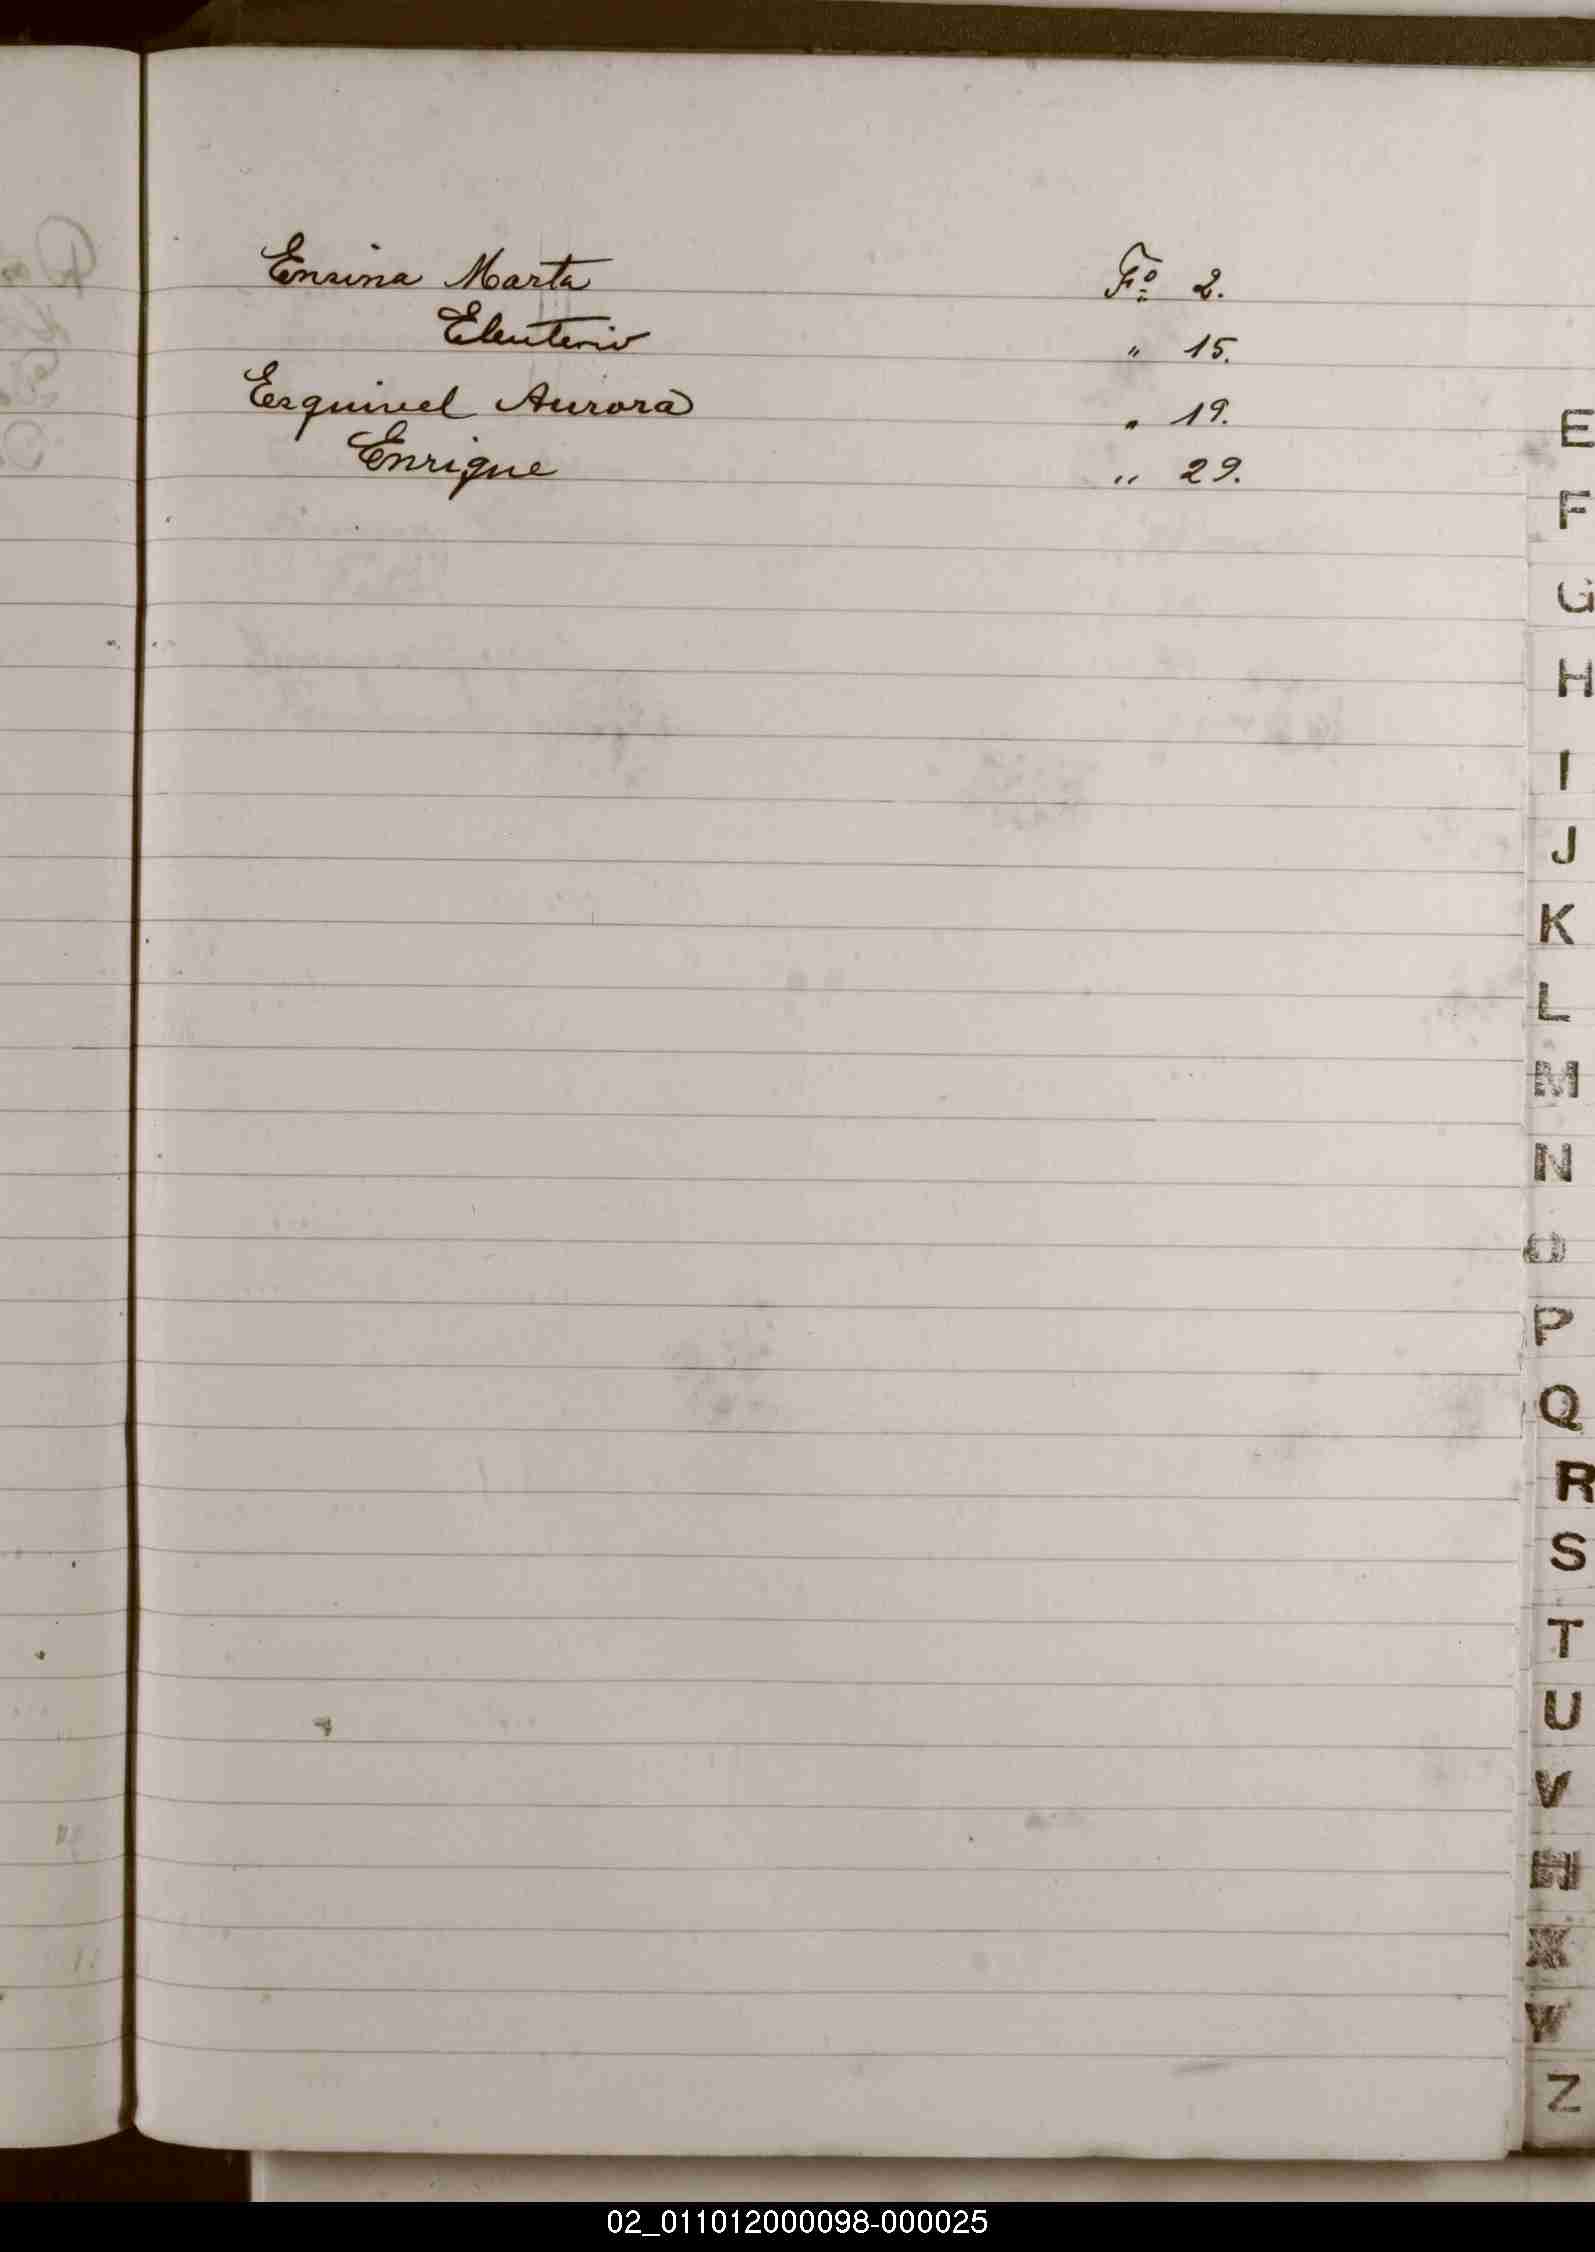 Ensina Marta Fº 2.
Eleuterio " 15.
Esquivel Aurora " 19.
Enrique " 29.
E
F
G
H
I
J
K
L
M
N
O
P
Q
R
S
T
U
V
X
Z
02_011012000098-000025